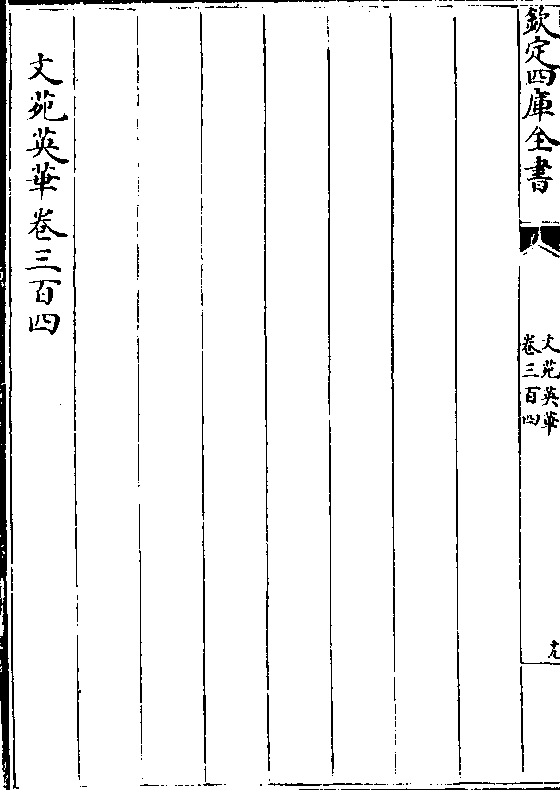 欽定四庫全書
文苑英華
卷三百四
文苑英華卷三百四